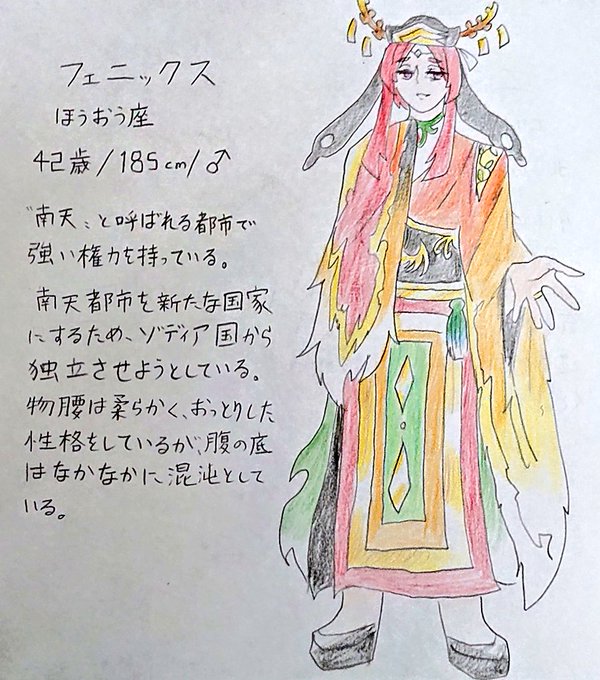 フェニックス
ほうおう座
42歳/185cm/♂
〝南天〟と呼ばれる都市で
強い権力を持っている。
南天都市を新たな国家
にするため、ゾディア国から
独立させようとしている。
物腰は柔らかく、おっとりした
性格をしているが、腹の底
はなかなかに混沌として
いる。